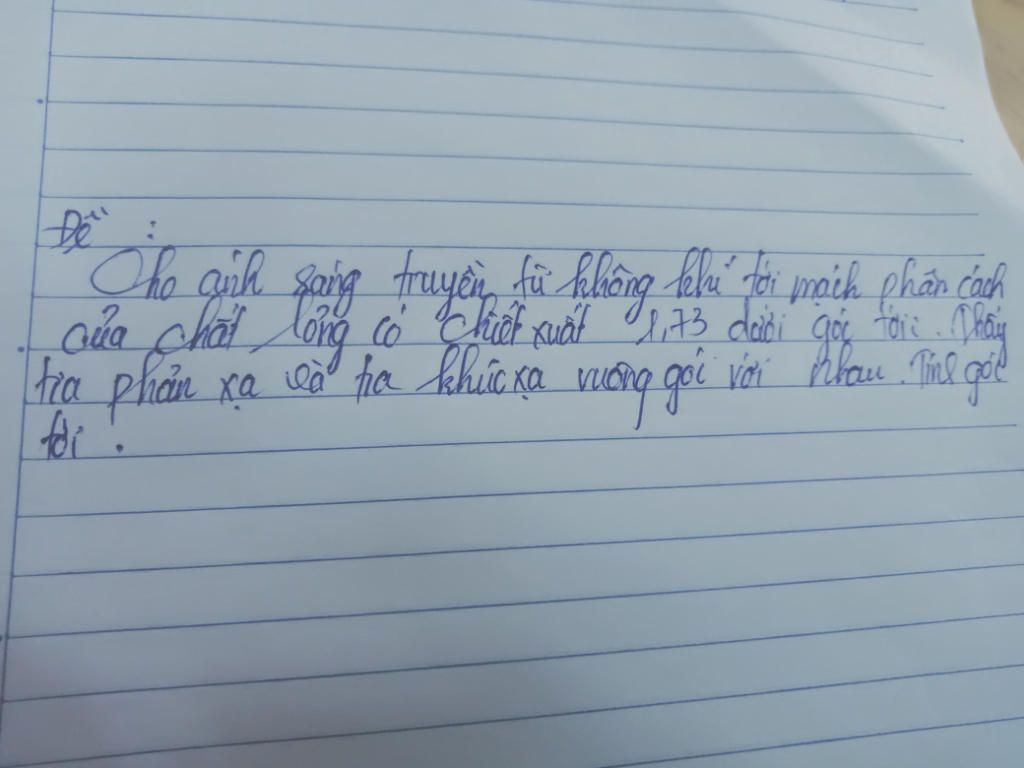 Đề :
Cho ánh sáng truyền từ không khí tới mạch phân cách
của chất lỏng có chiết xuất 1,73 dưới góc tới i. Thấy
tia phản xạ và tia khúc xạ vuông góc với nhau. Tính góc
tới .